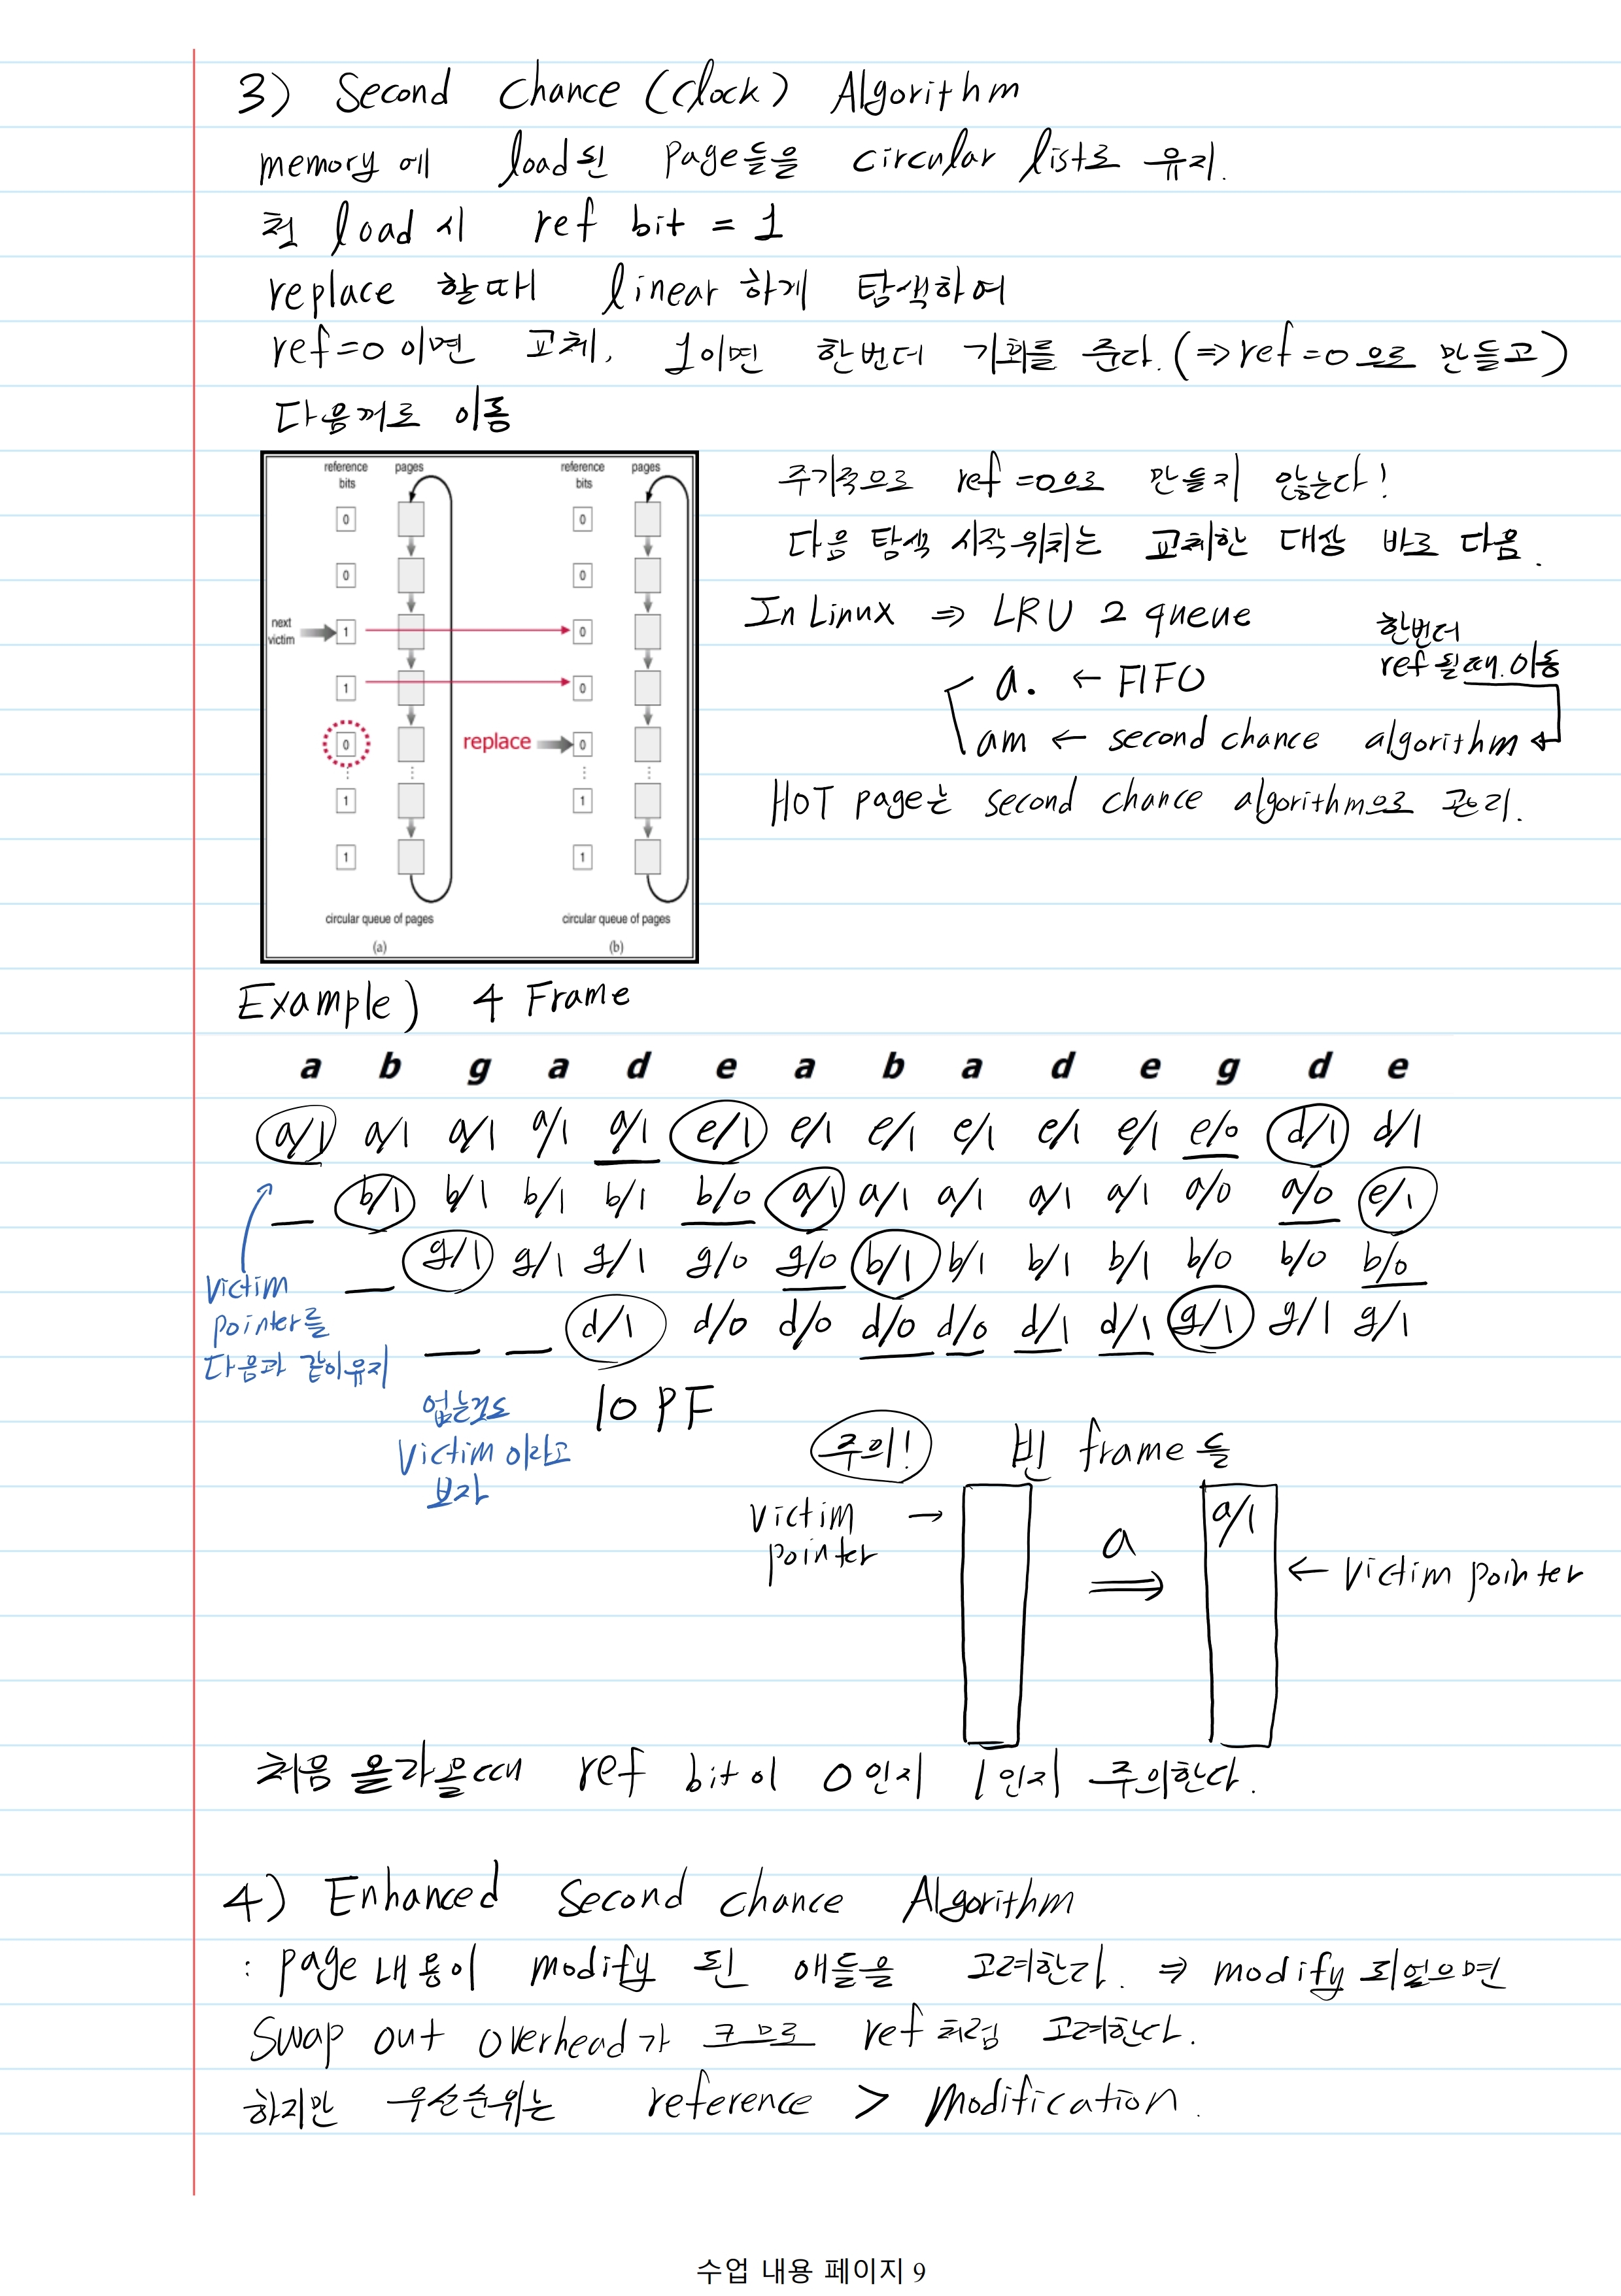 3) Second Chance (Clock) Algorithm
memory에 load된 page들을 circular list로 유지.
첫 load시 ref bit = 1
replace 할때 linear 하게 탐색하여
ref=0 이면 교체, 1이면 한번더 기회를 준다. (⇒ ref=0으로 만들고)
다음꺼로 이동
reference bits pages reference bits pages
0 0
0 0
next victim 1 0
1 0
0 replace 0
1 1
1 1
circular queue of pages circular queue of pages
(a) (b)
주기적으로 ref=0으로 만들지 않는다!
다음 탐색 시작위치는 교체한 대상 바로 다음.
In Linux ⇒ LRU 2 queue
한번더
ref 될때 이동
a. ← FIFO
am ← second chance algorithm
HOT page는 second chance algorithm으로 관리.
Example) 4 Frame
a b g a d e a b a d e g d e
a/1 a/1 a/1 a/1 a/1 e/1 e/1 e/1 e/1 e/1 e/1 e/0 d/1 d/1
b/1 b/1 b/1 b/1 b/0 a/1 a/1 a/1 a/1 a/1 a/0 a/0 e/1
g/1 g/1 g/1 g/0 g/0 b/1 b/1 b/1 b/1 b/0 b/0 b/0
d/1 d/0 d/0 d/0 d/0 d/1 d/1 g/1 g/1 g/1
victim
pointer를
다음과 같이유지
없는것도
victim 이라고
보자
10 PF
주의! 빈 frame들
victim → a/1
pointer a
⇒ ← victim pointer
처음 올라올때 ref bit이 0인지 1인지 주의한다.
4) Enhanced Second Chance Algorithm
: page 내용이 modify 된 애들을 고려한다. ⇒ modify 되었으면
Swap out overhead가 크므로 ref처럼 고려한다.
하지만 우선순위는 reference > Modification.
수업 내용 페이지 9